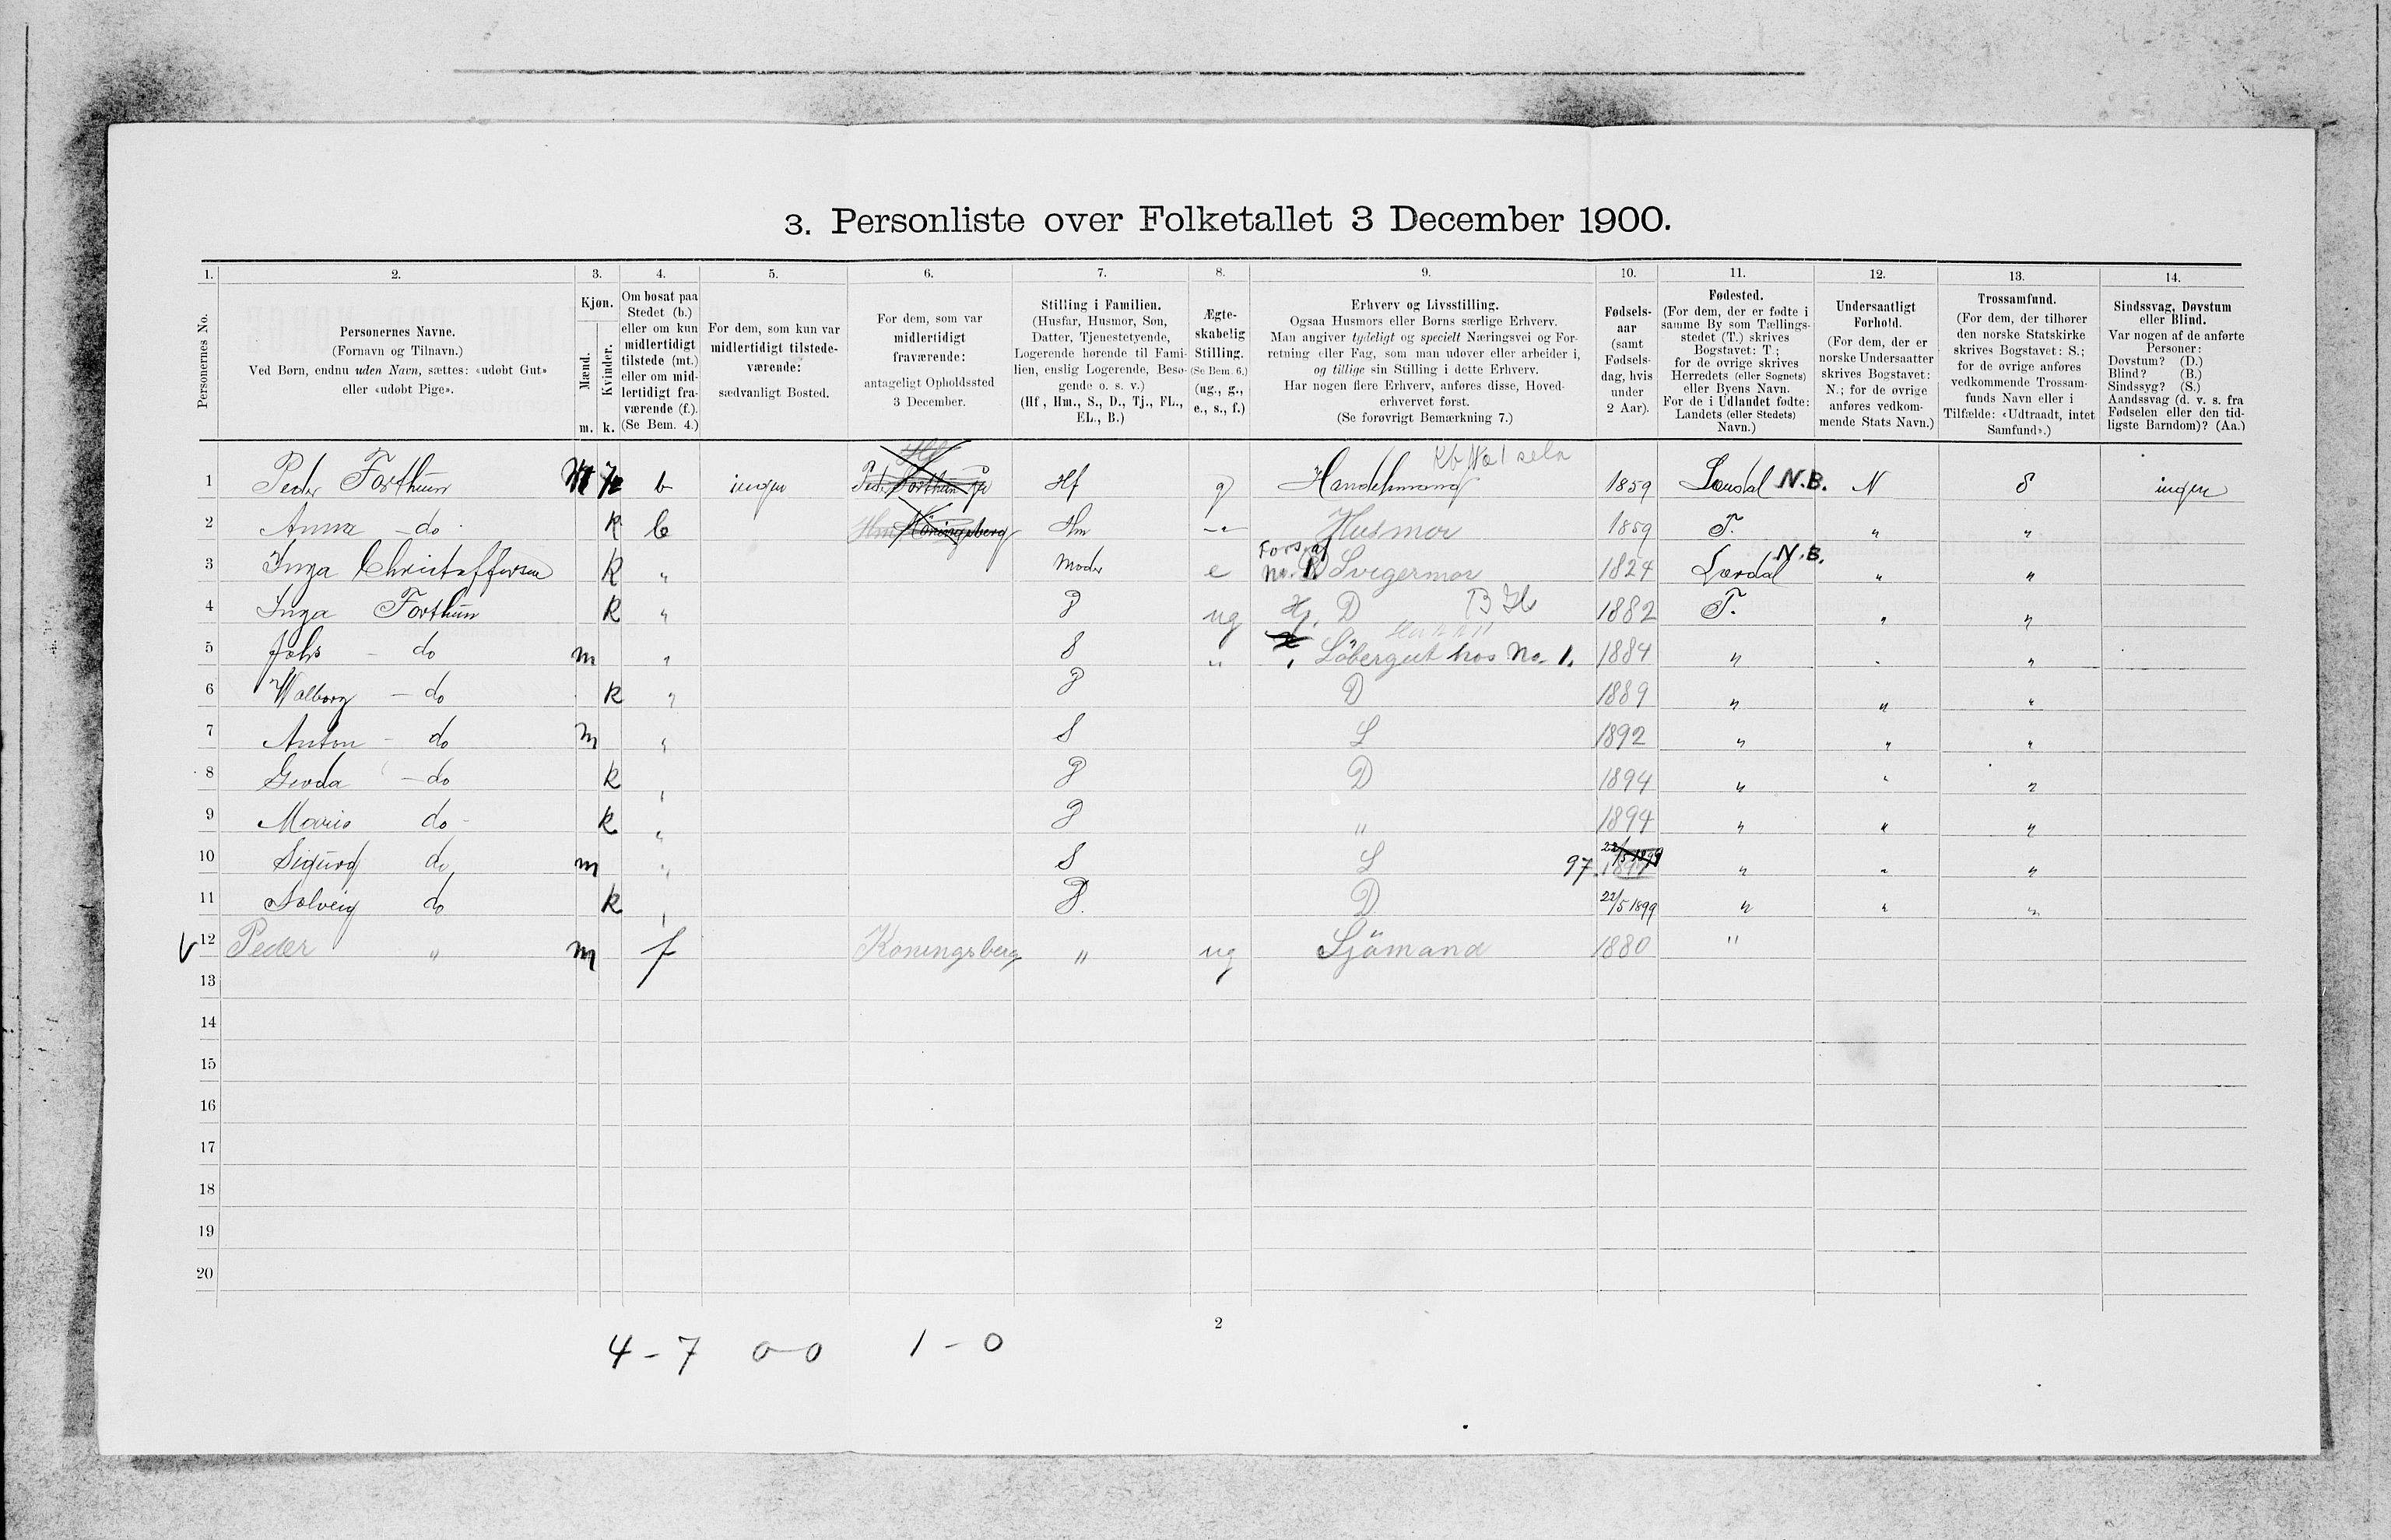 3. Personliste over Folketallet 3 December 1900.
1. 2. 3. 4. 5. 6. 7. 8. 9. 10. 11. 12. 13. 14.
Personernes No.
Personernes Navne.
(Fornavn og Tilnavn.)
Ved Børn, endnu uden Navn, sættes: «udøbt Gut»
eller «udøbt Pige».
Kjøn.
Mænd.
Kvinder.
m. k.
Om bosat paa
Stedet (b.)
eller om kun
midlertidigt
tilstede (mt.)
eller om mid-
lertidigt fra-
værende (f.).
(Se Bem. 4.)
For dem, som kun var
midlertidigt tilstede-
værende:
sædvanligt Bosted.
For dem, som var
midlertidigt
fraværende:
antageligt Opholdssted
3 December.
Stilling i Familien.
(Husfar, Husmor, Søn,
Datter, Tjenestetyende,
Logerende hørende til Fami-
lien, enslig Logerende, Besø-
gende o. s. v.)
(Hf, Hm., S., D., Tj., FL.,
EL., B.)
Ægte-
skabelig
Stilling.
(Se Bem. 6.)
(ug., g.,
e., s., f.)
Erhverv og Livsstilling.
Ogsaa Husmors eller Børns særlige Erhverv.
Man angiver tydeligt og specielt Næringsvei og For-
retning eller Fag, som man udøver eller arbeider i,
og tillige sin Stilling i dette Erhverv.
Har nogen flere Erhverv, anføres disse, Hoved-
erhvervet først.
(Se forøvrigt Bemærkning 7.)
Fødsels-
aar
(samt
Fødsels-
dag, hvis
under
2 Aar).
Fødested.
(For dem, der er fødte i
samme By som Tællings-
stedet (T.) skrives
Bogstavet: T;
for de øvrige skrives
Herredets (eller Sognets)
eller Byens Navn.
For de i Udlandet fødte:
Landets (eller Stedets)
Navn.)
Undersaatligt
Forhold.
(For dem, der er
norske Undersaatter
skrives Bogstavet:
N.; for de øvrige
anføres vedkom-
mende Stats Navn.)
Trossamfund.
(For dem, der tilhører
den norske Statskirke
skrives Bogstavet: S.;
for de øvrige anføres
vedkommende Trossam-
funds Navn eller i
Tilfælde: «Udtraadt, intet
Samfund».)
Sindssvag, Døvstum
eller Blind.
Var nogen af de anførte
Personer:
Døvstum? (D.)
Blind? (B.)
Sindssyg? (S.)
Aandssvag (d. v. s. fra
Fødselen eller den tid-
ligste Barndom)? (Aa.)
1 Peder Forthun b ingen Hf g Handelsmand 1859 Lærdal N.B. N S ingen
2 Anna - do k b Köningsberg Hm - " - Husmor 1859 T. " "
3 Inga Christoffersen k " Moder e Fors. af No. 1. Svigermor 1824 Lærdal N.B. " "
4 Inga Forthun k " D ug Hj. D 1882 T. " "
5 Johs - do m " S " Löbergut hos No. 1. 1884 " " "
6 Walborg - do k " D D 1889 " " "
7 Anton - do m " S S 1892 " " "
8 Gerda - do k " D D 1894 " " "
9 Marie do - k " D " 1894 " " "
10 Sigurd do m " S S 97 " " "
11 Solveig do k " D. D 22/5 1899 " " "
V 12 Peder " m f Koningsberg " ug Sjömand 1880 "
13
14
15
16
17
18
19
20
2
4 - 7 0-0 1 - 0